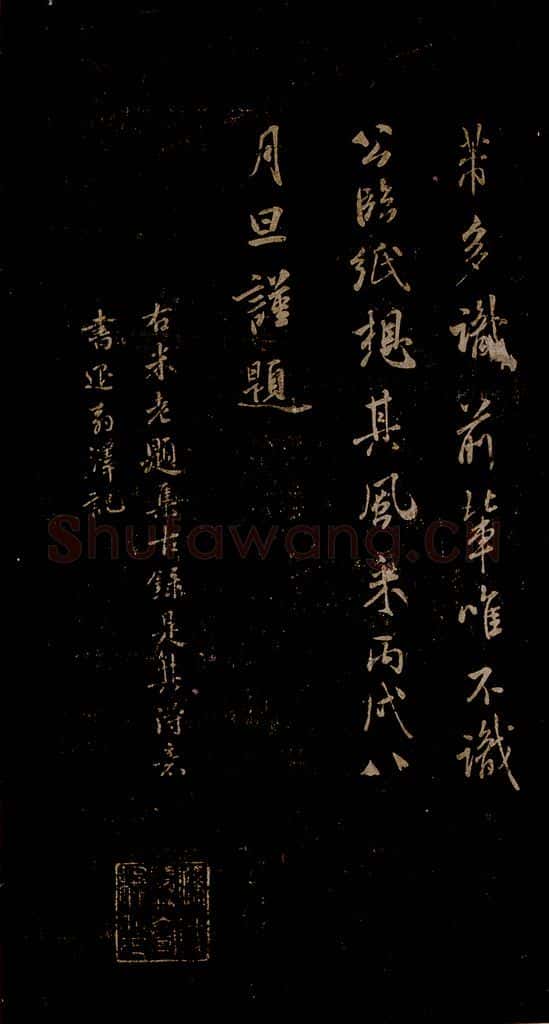 芾多識前輩唯不識
公臨紙想其風采丙戌八
月旦謹題
右米老題集古錄是其得意
書 澤記
Shufawang.cn